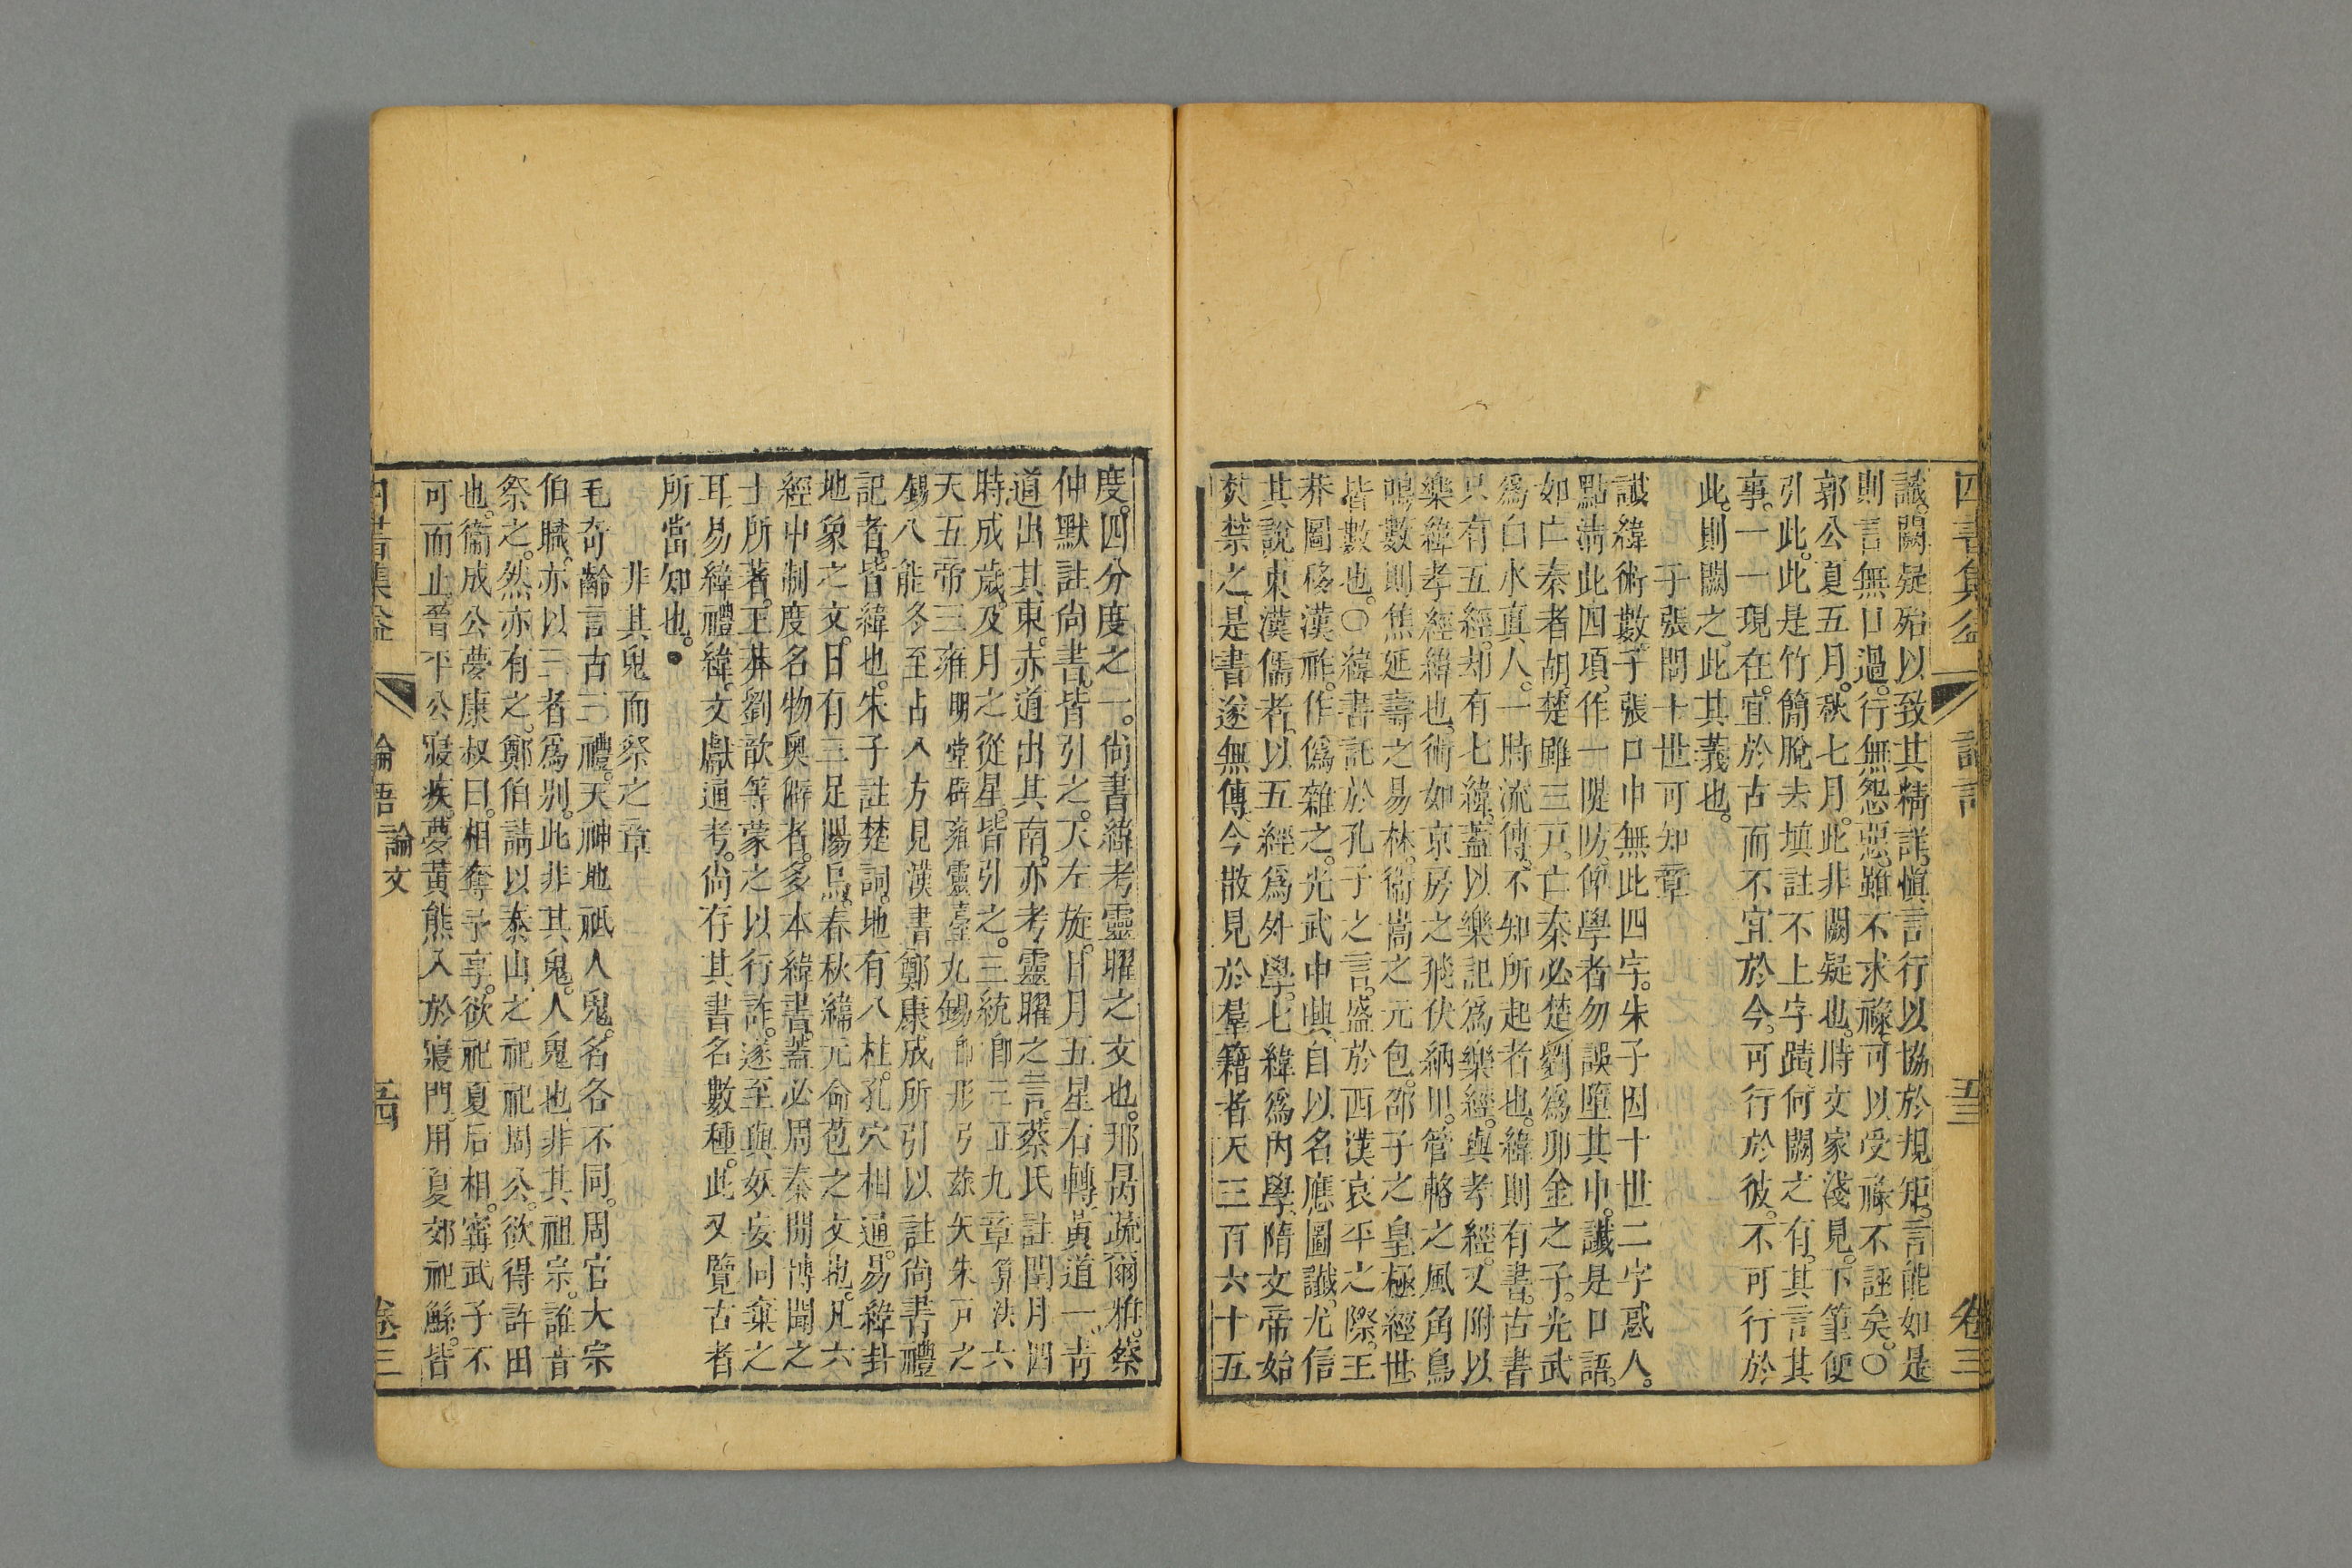 四書集益 論語 五三 卷三
識闕疑殆以致其精詳愼言行以協於規矩言能如是
則言無口過。行無怨惡。雖不求祿。可以受祿不誣矣。〇
郭公夏五月。秋七月。此非闕疑也。時文家淺見。下筆便
引此。此是竹簡脫去塡註不上字蹟。何闕之有。其言其
事。一一現在。宜於古而不宜於今。可行於彼。不可行於
此。則闕之。此其義也。
子張問十世可知章
讖緯術數。子張口中無此四字。朱子因十世二字惑人。
點淸此四項。作一隄防。俾學者勿誤墮其中。讖是口語。
如亡秦者胡。楚雖三戸。亡秦必楚。劉爲卯金之子。光武
爲白水真人。一時流傳。不知所起者也。緯則有書。古書
只有五經。却有七緯。蓋以樂記爲樂經。與考經。又附以
樂緯孝經緯也。術如京房之飛伏納甲。管輅之風角鳥
鳴。數則焦延壽之易林。衞嵩之元包。邵子之皇極經世
皆數也。〇緯書託於孔子之言。盛於西漢哀平之際。王
莽圖移漢祚。作僞雜之。光武中興。自以名應圖讖。尤信
其說。東漢儒者以五經爲外學。七緯爲內學。隋文帝始
焚禁之。是書遂無傳。今散見於羣籍者天三百六十五
度。四分度之一。尙書緯考靈曜之文也。邢昺疏爾雅。蔡
仲默註尙書。皆引之。天左旋。日月五星右轉黃道一。靑
道出其東。赤道出其南。亦考靈曜之言。蔡氏註閏月四
時成歲。及月之從星。皆引之。三統卽三正九章算法六
天五帝三雍明堂辟雍靈臺九錫卽彤弓玈矢朱戸之
錫八能冬至占八方見漢書鄭康成所引以註尙書禮
記者。皆緯也。朱子註楚詞。地有八柱。孔穴相通。易緯卦
地象之文。日有三足陽烏。春秋緯元命苞之文也。凡六
經中制度名物奧僻者。多本緯書。蓋必周秦閒博聞之
士所著。王莽劉歆等蒙之以行詐。遂至與妖妄同棄之
耳。易緯禮緯。文獻通考。尙存其書名數種。此又覽古者
所當知也。●
非其鬼而祭之章
毛奇齡言古三禮。天神地祇人鬼。名各不同。周官大宗
伯職。亦以三者爲別。此非其鬼。人鬼也。非其祖宗。誰肯
祭之。然亦有之。鄭伯請以泰山之祀祀周公。欲得許田
也。衞成公夢康叔曰。相奪予享。欲祀夏后相。甯武子不
可而止。晉平公寢疾。夢黃熊入於寢門。用夏郊祀鯀。皆
四書集益 論語 論文 五四 卷三